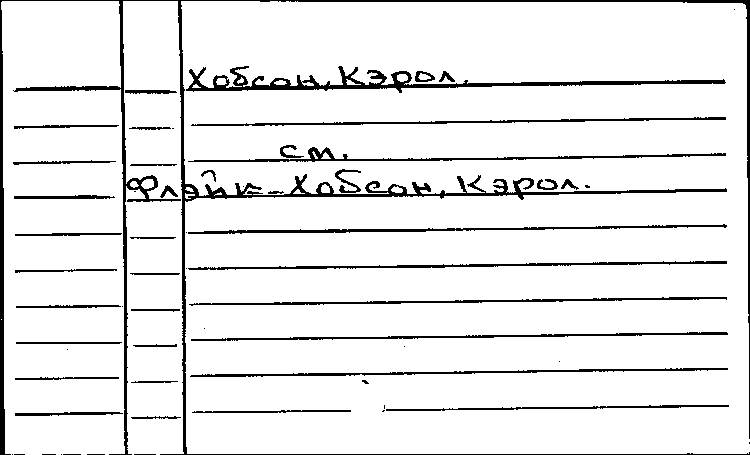 Хобсон, Кэрол.
см.
Флэйк-Хобсон, Кэрол.